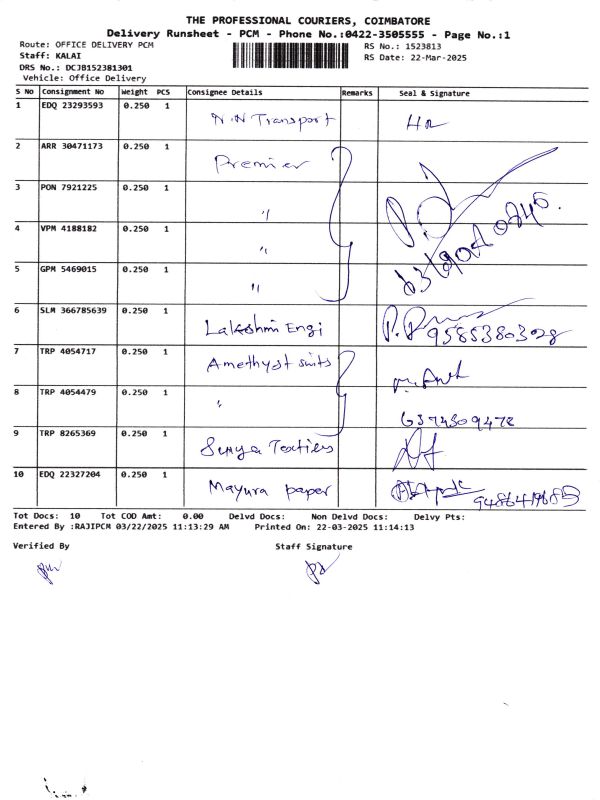 THE PROFESSIONAL COURIERS, COIMBATORE
Delivery Runsheet - PCM - Phone No.:0422-3505555 - Page No.:1
Route: OFFICE DELIVERY PCM
Staff: KALAI
DRS No.: DCJB152381301
Vehicle: Office Delivery
RS No.: 1523813
RS Date: 22-Mar-2025
S No Consignment No Weight PCS Consignee Details Remarks Seal & Signature
1 EDQ 23293593 0.250 1 N.N Transport
2 ARR 30471173 0.250 1 Premier
3 PON 7921225 0.250 1 "
4 VPM 4188182 0.250 1 "
5 GPM 5469015 0.250 1 "
6 SLM 366785639 0.250 1 Lakshmi Engi 9585380328
7 TRP 4054717 0.250 1 Amethyst suits
8 TRP 4054479 0.250 1 " 6374309472
9 TRP 8265369 0.250 1 Surya Textiles
10 EDQ 22327204 0.250 1 Mayura paper
Tot Docs: 10 Tot COD Amt: 0.00 Delvd Docs: Non Delvd Docs: Delvy Pts:
Entered By :RAJIPCM 03/22/2025 11:13:29 AM Printed On: 22-03-2025 11:14:13
Verified By Staff Signature